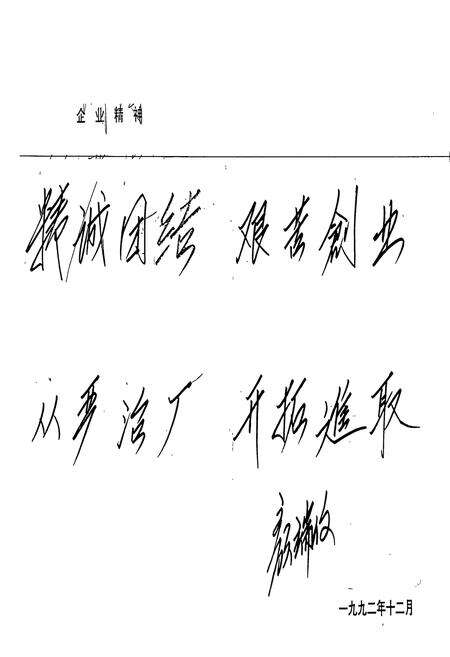 企业精神
精诚团结 艰苦创业
从严治厂 开拓進取
一九九二年十二月